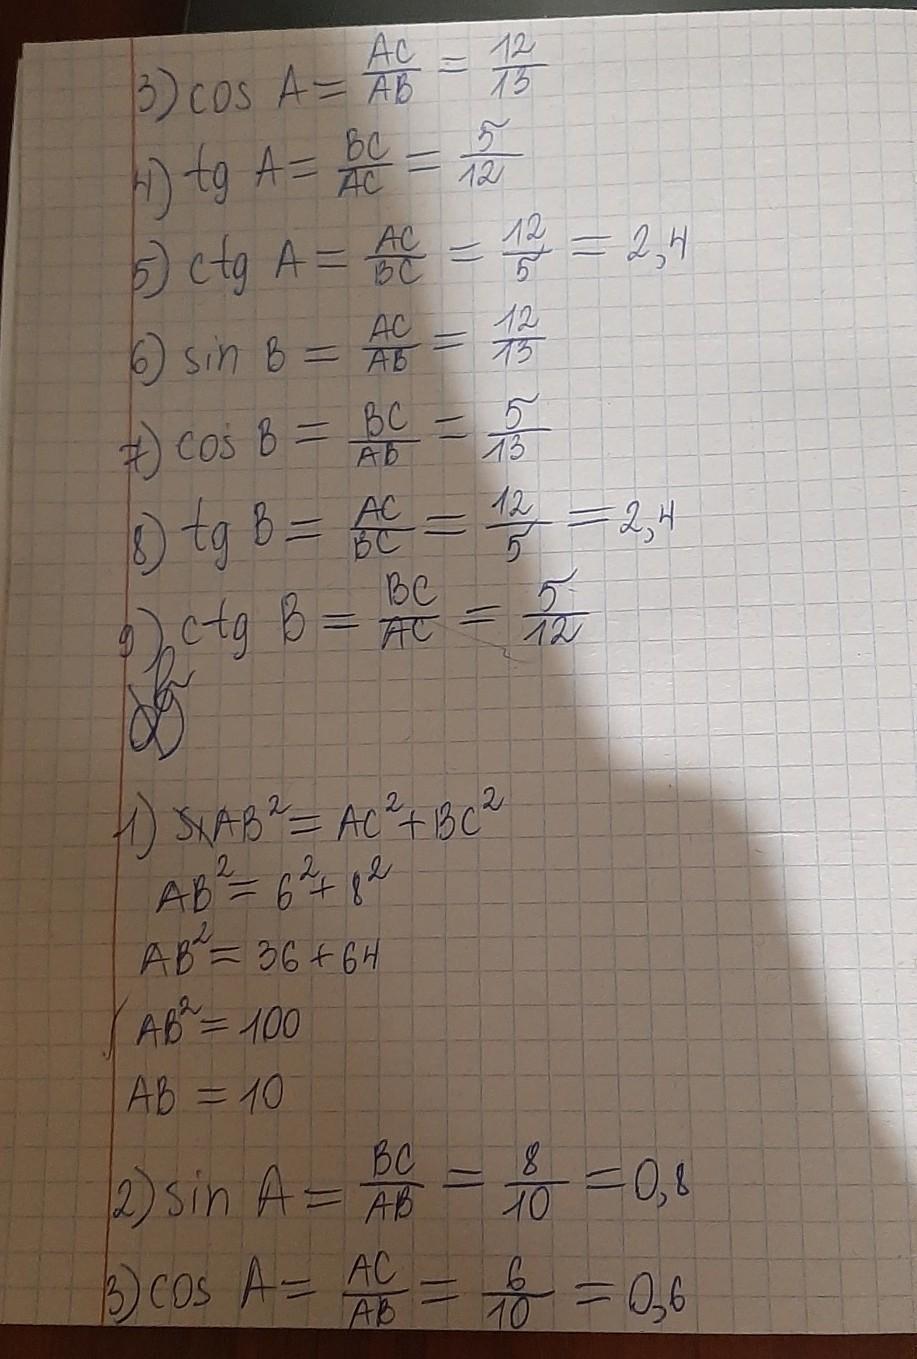 3) cos A = AC/AB = 12/13
4) tg A = BC/AC = 5/12
5) ctg A = AC/BC = 12/5 = 2,4
6) sin B = AC/AB = 12/13
7) cos B = BC/AB = 5/13
8) tg B = AC/BC = 12/5 = 2,4
9) ctg B = BC/AC = 5/12
1) AB² = AC² + BC²
AB² = 6² + 8²
AB² = 36 + 64
AB² = 100
AB = 10
2) sin A = BC/AB = 8/10 = 0,8
3) cos A = AC/AB = 6/10 = 0,6